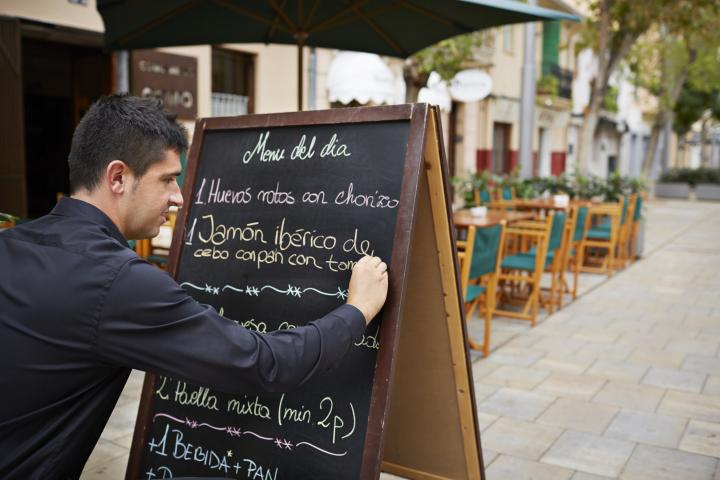 Menu del dia
1 Huevos rotos con chorizo
1 Jamón ibérico de
cebo con pan con tom
2º Paella mixta (min. 2 p)
+ 1 BEBIDA + PAN